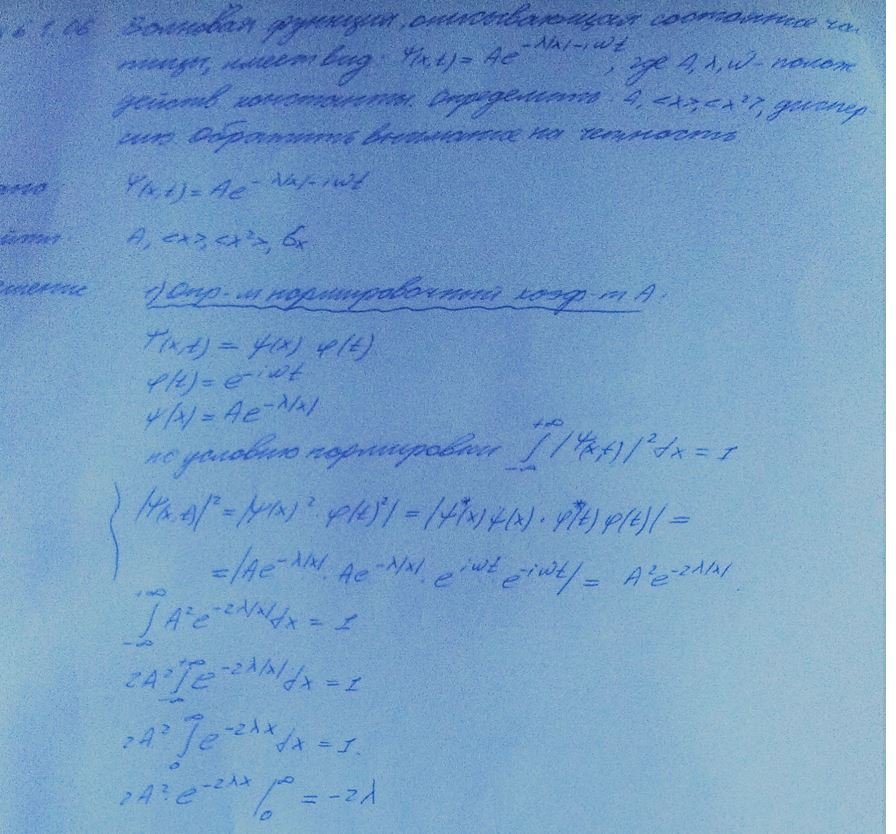 6.1.06 Волновая функция, описывающая состояние ча-
тицы, имеет вид: Ψ(x,t) = Ae^{-λ|x|-iωt}, где A, λ, ω - полож
действ. константы. Определить: A, <x>, <x²>, диспер-
сию. Обратить внимание на четность
Ψ(x,t) = Ae^{-λ|x|-iωt}
A, <x>, <x²>, σx
1) Опр-м нормировочный коэф-т A:
Ψ(x,t) = ψ(x) φ(t)
φ(t) = e^{-iωt}
ψ(x) = Ae^{-λ|x|}
по условию нормировки ∫_{-∞}^{+∞} |Ψ(x,t)|² dx = 1
|Ψ(x,t)|² = |ψ(x)² · φ(t)²| = |ψ*(x) ψ(x) · φ*(t) φ(t)| =
= |Ae^{-λ|x|} · Ae^{-λ|x|} · e^{iωt} e^{-iωt}| = A²e^{-2λ|x|}
∫_{-∞}^{+∞} A²e^{-2λ|x|} dx = 1
2A² ∫_{-∞}^{+∞} e^{-2λ|x|} dx = 1
2A² ∫_0^∞ e^{-2λx} dx = 1.
2A² · e^{-2λx} |_0^∞ = -2λ